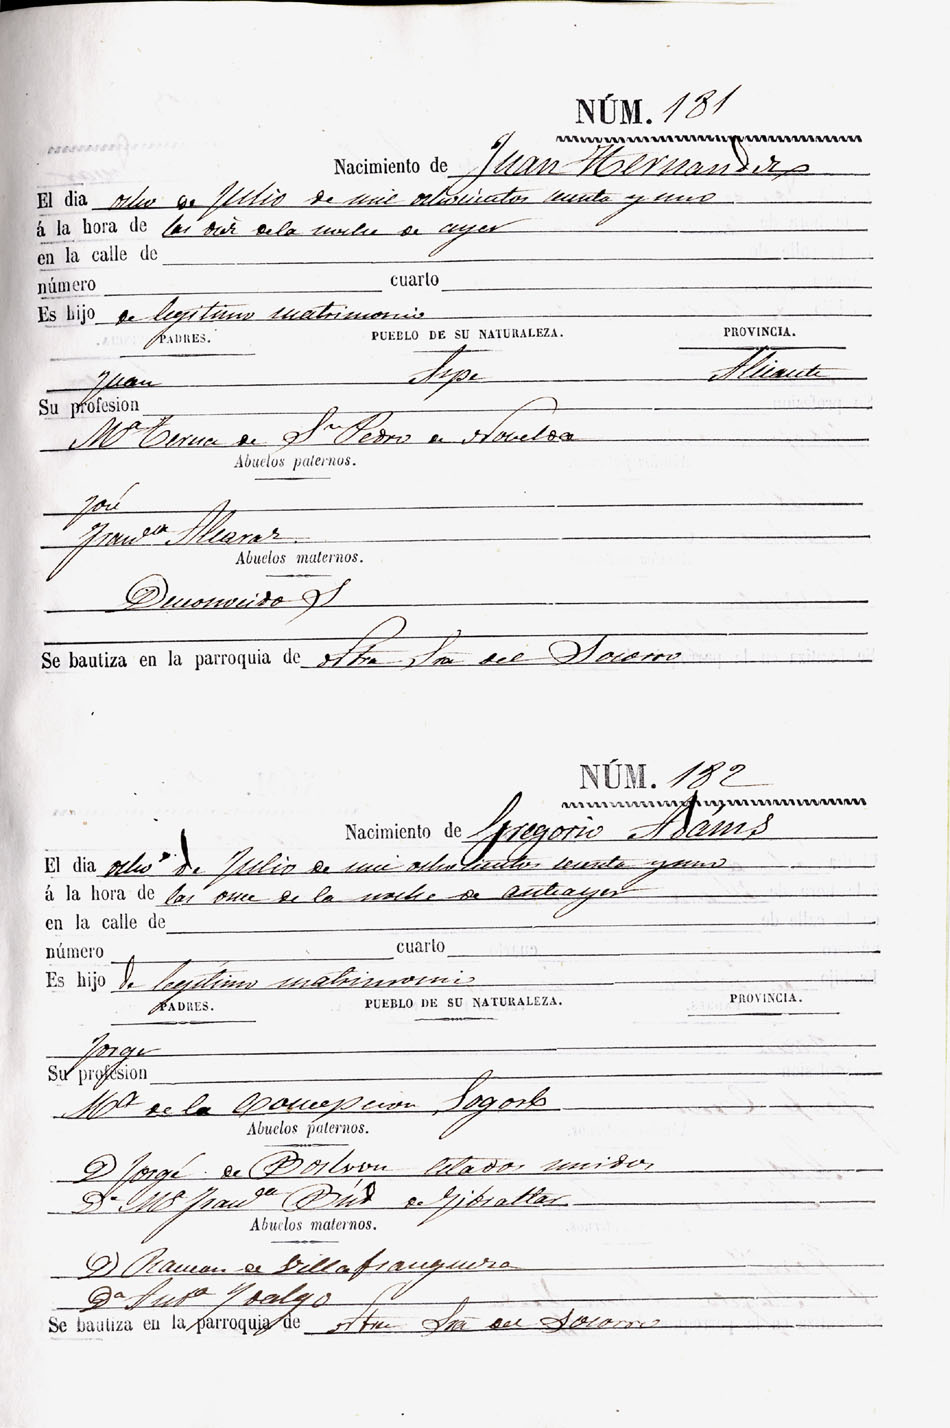 NÚM. 181
Nacimiento de Juan Hernandez
El dia ocho de Julio de mil ochocientos cuenta y uno
á la hora de las diez de la noche de ayer
en la calle de
número cuarto
Es hijo de legitimo matrimonio
PADRES. PUEBLO DE SU NATURALEZA. PROVINCIA.
Juan Aspe Alicante
Su profesion
Mª Teresa de Sn Pedro de Novelda
Abuelos paternos.
José
Franca Alcaraz
Abuelos maternos.
Desconocidos
Se bautiza en la parroquia de Ntra Sra del Socorro
NÚM. 182
Nacimiento de Gregorio Adáms
El dia ocho de Julio de mil ochocientos cuenta y uno
á la hora de las once de la noche de anteayer
en la calle de
número cuarto
Es hijo de legitimo matrimonio
PADRES. PUEBLO DE SU NATURALEZA. PROVINCIA.
Jorge
Su profesion
Mª de la Concepcion Sogorb
Abuelos paternos.
D Jorge de Boston Estados unidos
Dª Mª Franca de Gibraltar
Abuelos maternos.
D Ramon de Villafranqueza
Dª Antª Hidalgo
Se bautiza en la parroquia de Ntra Sra del Socorro